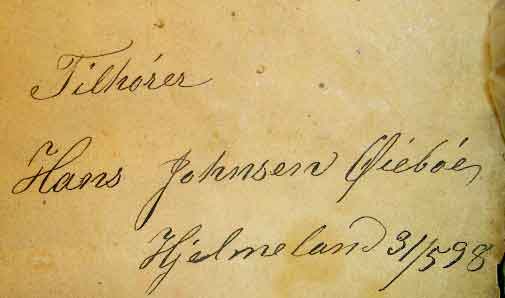 Tilhórer
Hans Johnsen Øiebóe,
Hjelmeland 31/5 98